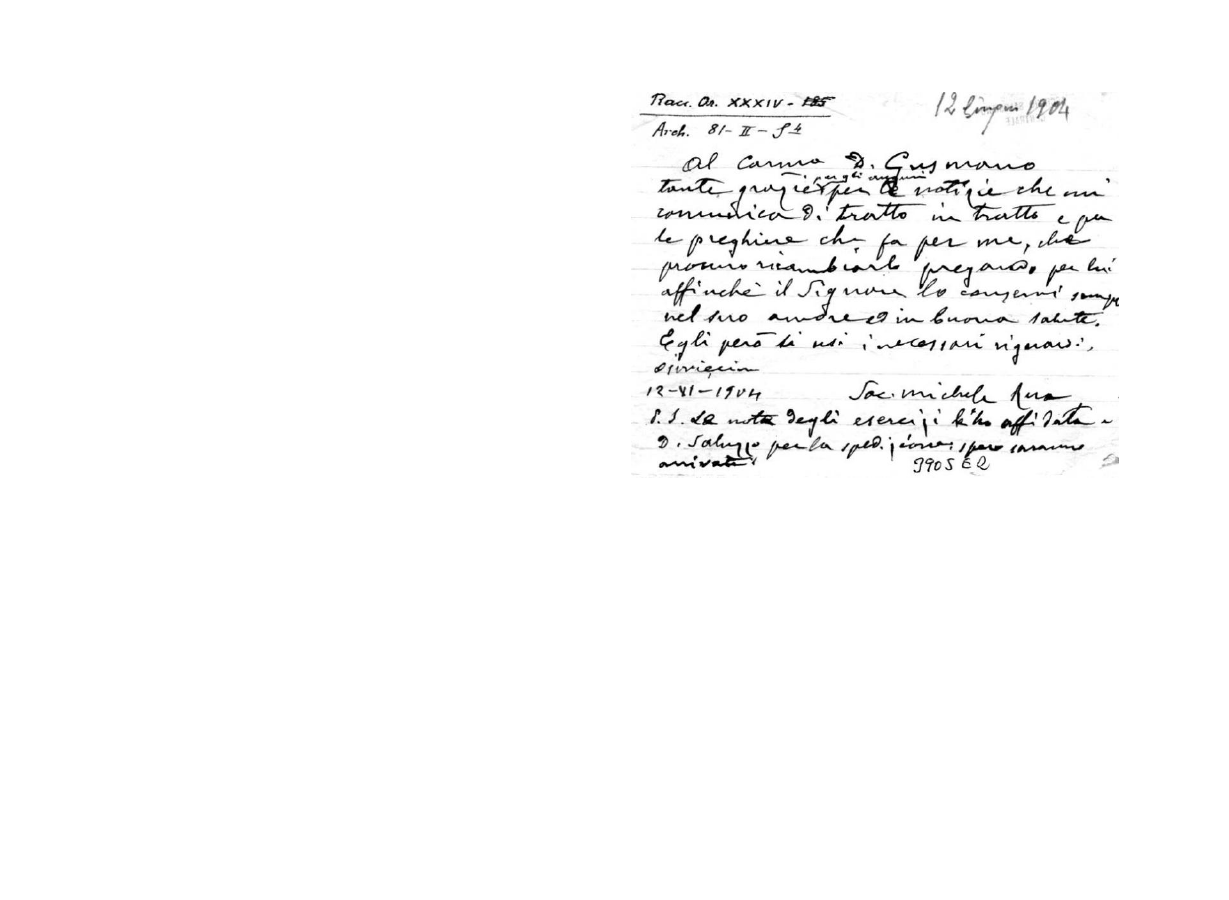 Racc. Or. XXXIV - 185
12 Giugno 1904
Arch. 81- II - S 4
Al Carmo D. Gusmano
per gli auguri
tante grazie per le notizie che mi
comunica di tratto in tratto e per
le preghiere che fa per me, che
procuro ricambiarlo pregando per lui
affinchè il Signore lo conservi sempre
nel suo amore ed in buona salute.
Egli però si usi i necessari riguardi,
12-VI-1904 Sac. Michele Rua
P.S. Le note degli esercizi le ho affidate a
D. Saluzzo per la spedizione; spero saranno
arrivate
3905 E 2